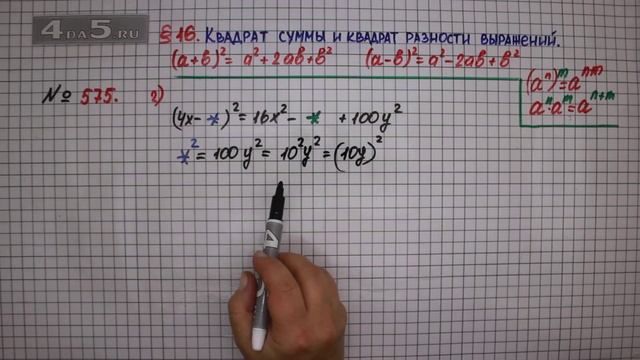 4DA5.RU
§16. Квадрат суммы и квадрат разности выражений.
(a+b)² = a²+2ab+b² (a-b)² = a²-2ab+b²
(aⁿ)ᵐ = aⁿᵐ
aⁿ·aᵐ = aⁿ⁺ᵐ
№ 575. г) (4x-*)² = 16x² - * + 100y²
*² = 100y² = 10²y² = (10y)²